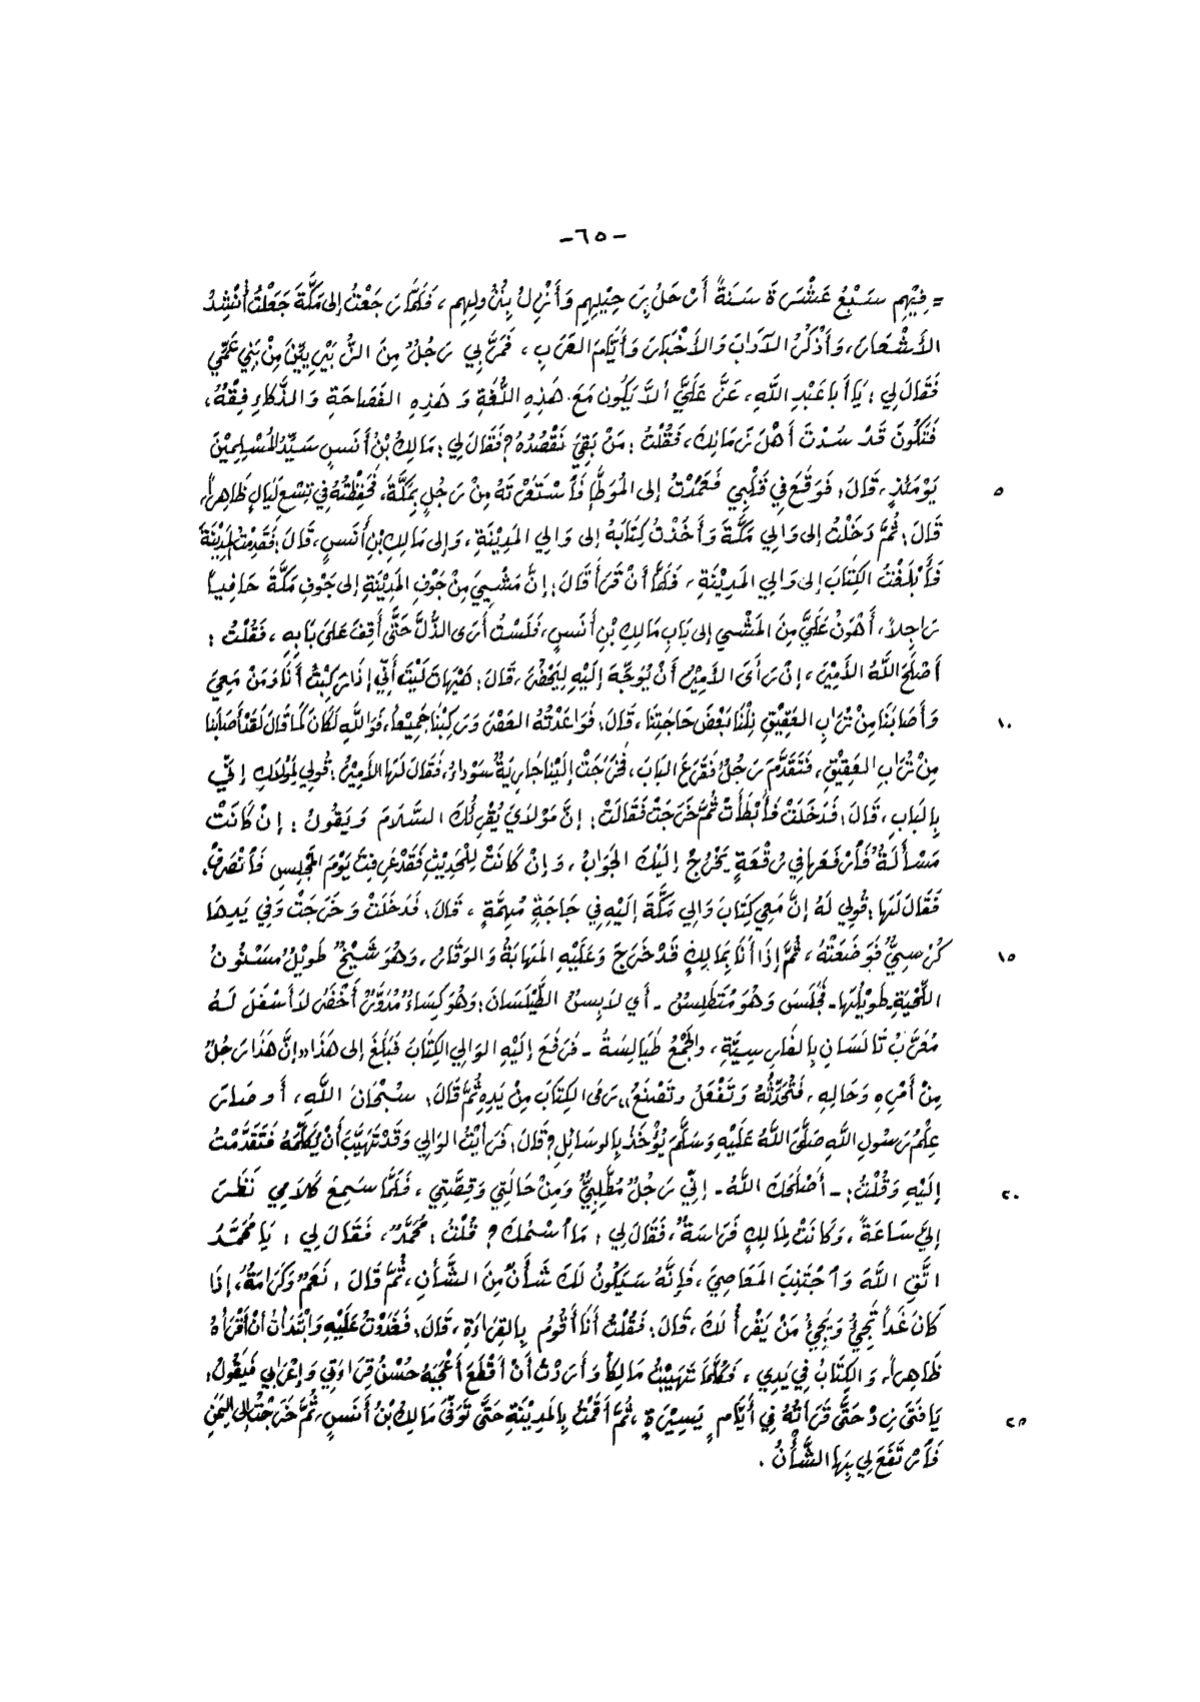 -٦٥-
= فِيْهِم سَبْعَ عَشْرَةَ سَنَةً أَرْحَلُ بِرَحِيْلِهِم وَأَنْزِلُ بِنُزُولِهِم، فَلَمَّا رَجَعْتُ إلى مَكَّةَ جَعَلْتُ أُنْشِدُ
الأَشْعَارَ، وَأَذْكُرُ الآدَابَ وَالأَخْبَارَ وَأَيَّامَ العَرَبِ، فَمَرَّ بِي رَجُلٌ مِنَ الزُّبَيْرِيِّيْنَ مِنْ بَنِي عَمِّي
فَقَالَ لِي: يَا أَبَا عَبْدِ اللَّهِ، عَزَّ عَلَيَّ أَلاَّ يَكُونَ مَعَ هَذِهِ اللُّغَةِ وَهَذِهِ الفَصَاحَةِ وَالذَّكَاءِ فِقْهٌ،
فَتَكُونَ قَدْ سُدْتَ أَهْلَ زَمَانِكَ، فَقُلْتُ: مَنْ بَقِيَ نَقْصُدُهُ؟ فَقَالَ لِي: مَالِكُ بْنُ أَنَسٍ سَيِّدُ المُسْلِمِيْنَ
٥ يَوْمَئِذٍ، قَالَ: فَوَقَعَ فِي قَلْبِي فَعَمَدْتُ إلى المُوَطَّأِ فَاسْتَعَرْتَهُ مِنْ رَجُلٍ بِمَكَّةَ، فَحَفِظْتُهُ فِي تِسْعِ لَيَالٍ ظَاهِراً،
قَالَ: ثُمَّ دَخَلْتُ إلى وَالِي مَكَّةَ وَأَخَذْتُ كِتَابَهُ إلى وَالِي المَدِيْنَةِ، وَإلى مَالِكِ بْنِ أَنَسٍ، قَالَ: فَقَدِمْتُ المَدِيْنَةَ
فَأَبْلَغْتُ الكِتَابَ إلى وَالِي المَدِيْنَةِ، فَلَمَّا أَنْ قَرَأَ قَالَ: إنَّ مَشْيِيَ مِنْ جَوْفِ المَدِيْنَةِ إلى جَوْفِ مَكَّةَ حَافِياً
رَاجِلاً، أَهْوَنُ عَلَيَّ مِنَ المَشْيِ إلى بَابِ مَالِكِ بْنِ أَنَسٍ، فَلَسْتُ أَرَى الذُّلَّ حَتَّى أَقِفَ عَلَى بَابِهِ، فَقُلْتُ:
أَصْلَحَ اللَّهُ الأَمِيْرَ، إنْ رَأَى الأَمِيْرُ أَنْ يُوَجِّهَ إلَيْهِ لِيَحْضُرَ، قَالَ: هَيْهَاتَ لَيْتَ أَنِّي إذَا رَكِبْتُ أَنَا وَمَنْ مَعِيَ
١٠ وَأَصَابَنَا مِنْ تُرَابِ العَقِيْقِ نِلْنَا بَعْضَ حَاجَتِنَا، قَالَ: فَوَاعَدْتُهُ العَصْرَ وَرَكِبْنَا جَمِيْعاً، فَوَاللَّهِ لَكَانَ كَمَا قَالَ لَقَدْ أَصَابَنَا
مِنْ تُرَابِ العَقِيْقِ، فَتَقَدَّمَ رَجُلٌ فَقَرَعَ البَابَ، فَخَرَجَتْ إلَيْنَا جَارِيَةٌ سَوْدَاءُ، فَقَالَ لَهَا الأَمِيْرُ: قُولِي لِمَوْلاَكِ إنِّي
بِالبَابِ، قَالَ: فَدَخَلَتْ فَأَبْطَأَتْ ثُمَّ خَرَجَتْ فَقَالَتْ: إنَّ مَوْلاَيَ يُقْرِئُكَ السَّلاَمَ وَيَقُولُ: إنْ كَانَتْ
مَسْأَلَةٌ فَارْفَعْهَا فِي رُقْعَةٍ يَخْرُجُ إلَيْكَ الجَوَابُ، وَإنْ كَانَتْ لِلْحَدِيْثِ فَقَدْ عَرَفْتَ يَوْمَ المَجْلِسِ فَانْصَرِفْ،
فَقَالَ لَهَا: قُولِي لَهُ إنَّ مَعِيَ كِتَابَ وَالِي مَكَّةَ إلَيْهِ فِي حَاجَةٍ مُهِمَّةٍ، قَالَ: فَدَخَلَتْ وَخَرَجَتْ وَفِي يَدِهَا
١٥ كُرْسِيٌّ فَوَضَعَتْهُ، ثُمَّ إذَا أَنَا بِمَالِكٍ قَدْ خَرَجَ وَعَلَيْهِ المَهَابَةُ وَالوَقَارُ، وَهُوَ شَيْخٌ طَوِيْلٌ مَسْنُونُ
اللِّحْيَةِ طَوِيْلُهَا - فَجَلَسَ وَهُوَ مُتَطَلِّسٌ - أَي لاَبِسٌ الطَّيْلَسَانَ: وَهُوَ كِسَاءٌ مُدَوَّرٌ أَخْضَرُ لاَ أَسْفَلَ لَهُ
مُعَرَّبُ تَالَسَانِ بِالفَارِسِيَّةِ، والجَمْعُ طَيَالِسَةٌ - فَرَفَعَ إلَيْهِ الوَالِي الكِتَابَ فَبَلَغَ إلى هَذَا «إنَّ هَذَا رَجُلٌ
مِنْ أَمْرِهِ وَحَالِهِ، فَتُحَدِّثُهُ وَتَفْعَلُ وتَصْنَعُ» رَمَى الكِتَابَ مِنْ يَدِهِ ثُمَّ قَالَ: سُبْحَانَ اللَّهِ، أَوصَارَ
عِلْمُ رَسُولِ اللَّهِ صَلَّى اللَّهُ عَلَيْهِ وَسَلَّمَ يُؤْخَذُ بِالوسَائِلِ؟ قَالَ: فَرَأَيْتُ الوَالِي وَقَدْ تَهَيَّبَ أَنْ يُكَلِّمَهُ فَتَقَدَّمْتُ
٢٠ إلَيْهِ وَقُلْتُ: - أَصْلَحَكَ اللَّهُ - إنِّي رَجُلٌ مُطَّلِبِيٌّ وَمِنْ حَالَتِي وَقِصَّتِي، فَلَمَّا سَمِعَ كَلاَمِي نَظَرَ
إلَيَّ سَاعَةً، وَكَانَتْ لِمَالِكٍ فَرَاسَةٌ، فَقَالَ لِي: مَا اسْمُكَ؟ قُلْتُ: مُحَمَّدٌ، فَقَالَ لِي: يَا مُحَمَّدُ
اتَّقِ اللَّهَ وَاجْتَنِبَ المَعَاصِيَ، فَإنَّهُ سَيَكُونُ لَكَ شَأْنٌ مِنَ الشَّأْنِ، ثُمَّ قَالَ: نَعَمْ وَكَرَامَةً، إذَا
كَانَ غَداً تَجِيْءُ وَيَجِيْءُ مَنْ يَقْرَأُ لَكَ، قَالَ: فَقُلْتُ أَنَا أَقُومُ بِالقِرَاءَةِ، قَالَ: فَغَدَوْتُ عَلَيْهِ وَابْتَدَأْتُ أَنْ أَقْرَأَهُ
ظَاهِراً، وَالكِتَابُ فِي يَدِي، فَكُلَّمَا تَهَيَّبْتُ مَالِكاً وَأَرَدْتُ أَنْ أَقْطَعَ أَعْجَبَهُ حُسْنُ قِرَاءَتِي وَإعْرَابِي فَيَقُولُ:
٢٥ يَا فَتَى زِدْ حَتَّى قَرَأْتُهُ فِي أَيَّامٍ يَسِيْرَةٍ، ثُمَّ أَقَمْتُ بِالمَدِيْنَةِ حَتَّى تَوَفَّى مَالِكُ بْنُ أَنَسٍ، ثُمَّ خَرَجْتُ إلى اليَمَنِ
فَارْتَفَعَ لِي بِهَا الشَّأْنُ.